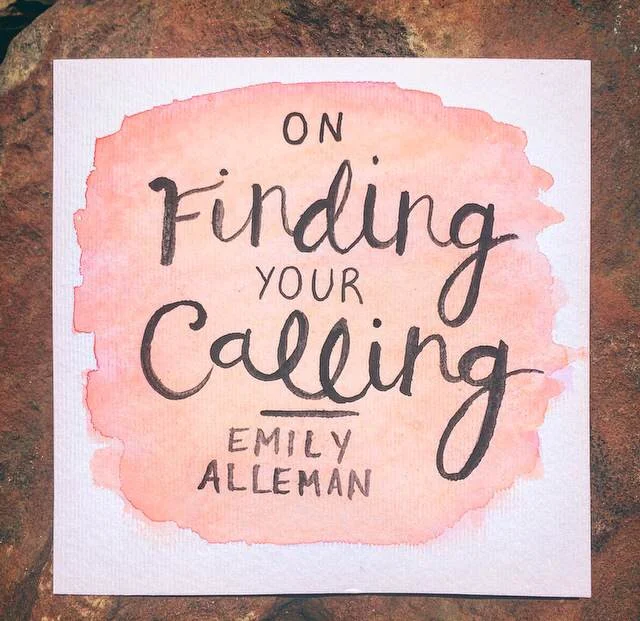 ON
Finding
YOUR
Calling
EMILY
ALLEMAN